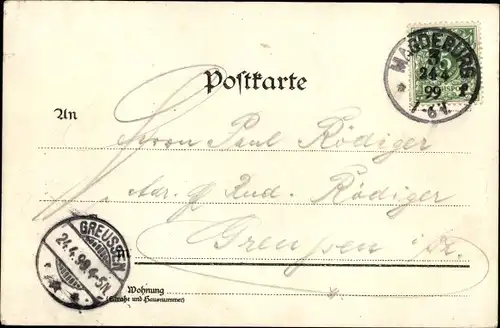 Postkarte
MAGDEBURG
3
24.4
99
An
Herrn Paul Rödiger
Adr. Rud. Rödiger
Greußen i. Th.
GREUSSEN
24.4.99.4-5N
Wohnung
(Straße und Hausnummer)